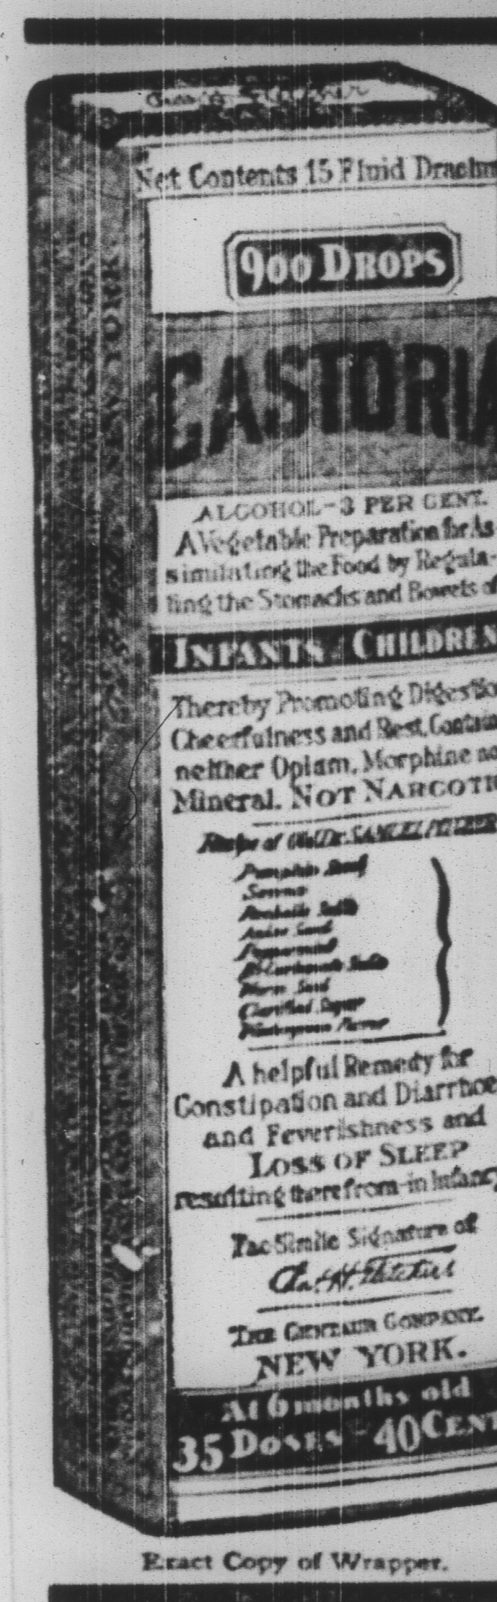 Net Contents 15 Fluid Drachm
900 DROPS
CASTORIA
ALCOHOL-3 PER CENT.
A Vegetable Preparation for As-
similating the Food by Regula-
ting the Stomachs and Bowels of
INFANTS CHILDREN
Thereby Promoting Digestion
Cheerfulness and Rest. Contains
neither Opium, Morphine nor
Mineral. NOT NARCOTIC
Recipe of Old Dr. SAMUEL PITCHER
Pumpkin Seed
Senna
Rochelle Salts
Anise Seed
Peppermint
Bi-Carbonate Soda
Worm Seed
Clarified Sugar
Wintergreen Flavor
A helpful Remedy for
Constipation and Diarrhoea
and Feverishness and
LOSS OF SLEEP
resulting therefrom in Infancy
Fac-Simile Signature of
Chas. H. Fletcher
THE CENTAUR COMPANY.
NEW YORK.
At 6 months old
35 DOSES - 40 CENT
Exact Copy of Wrapper.
NEW YORK